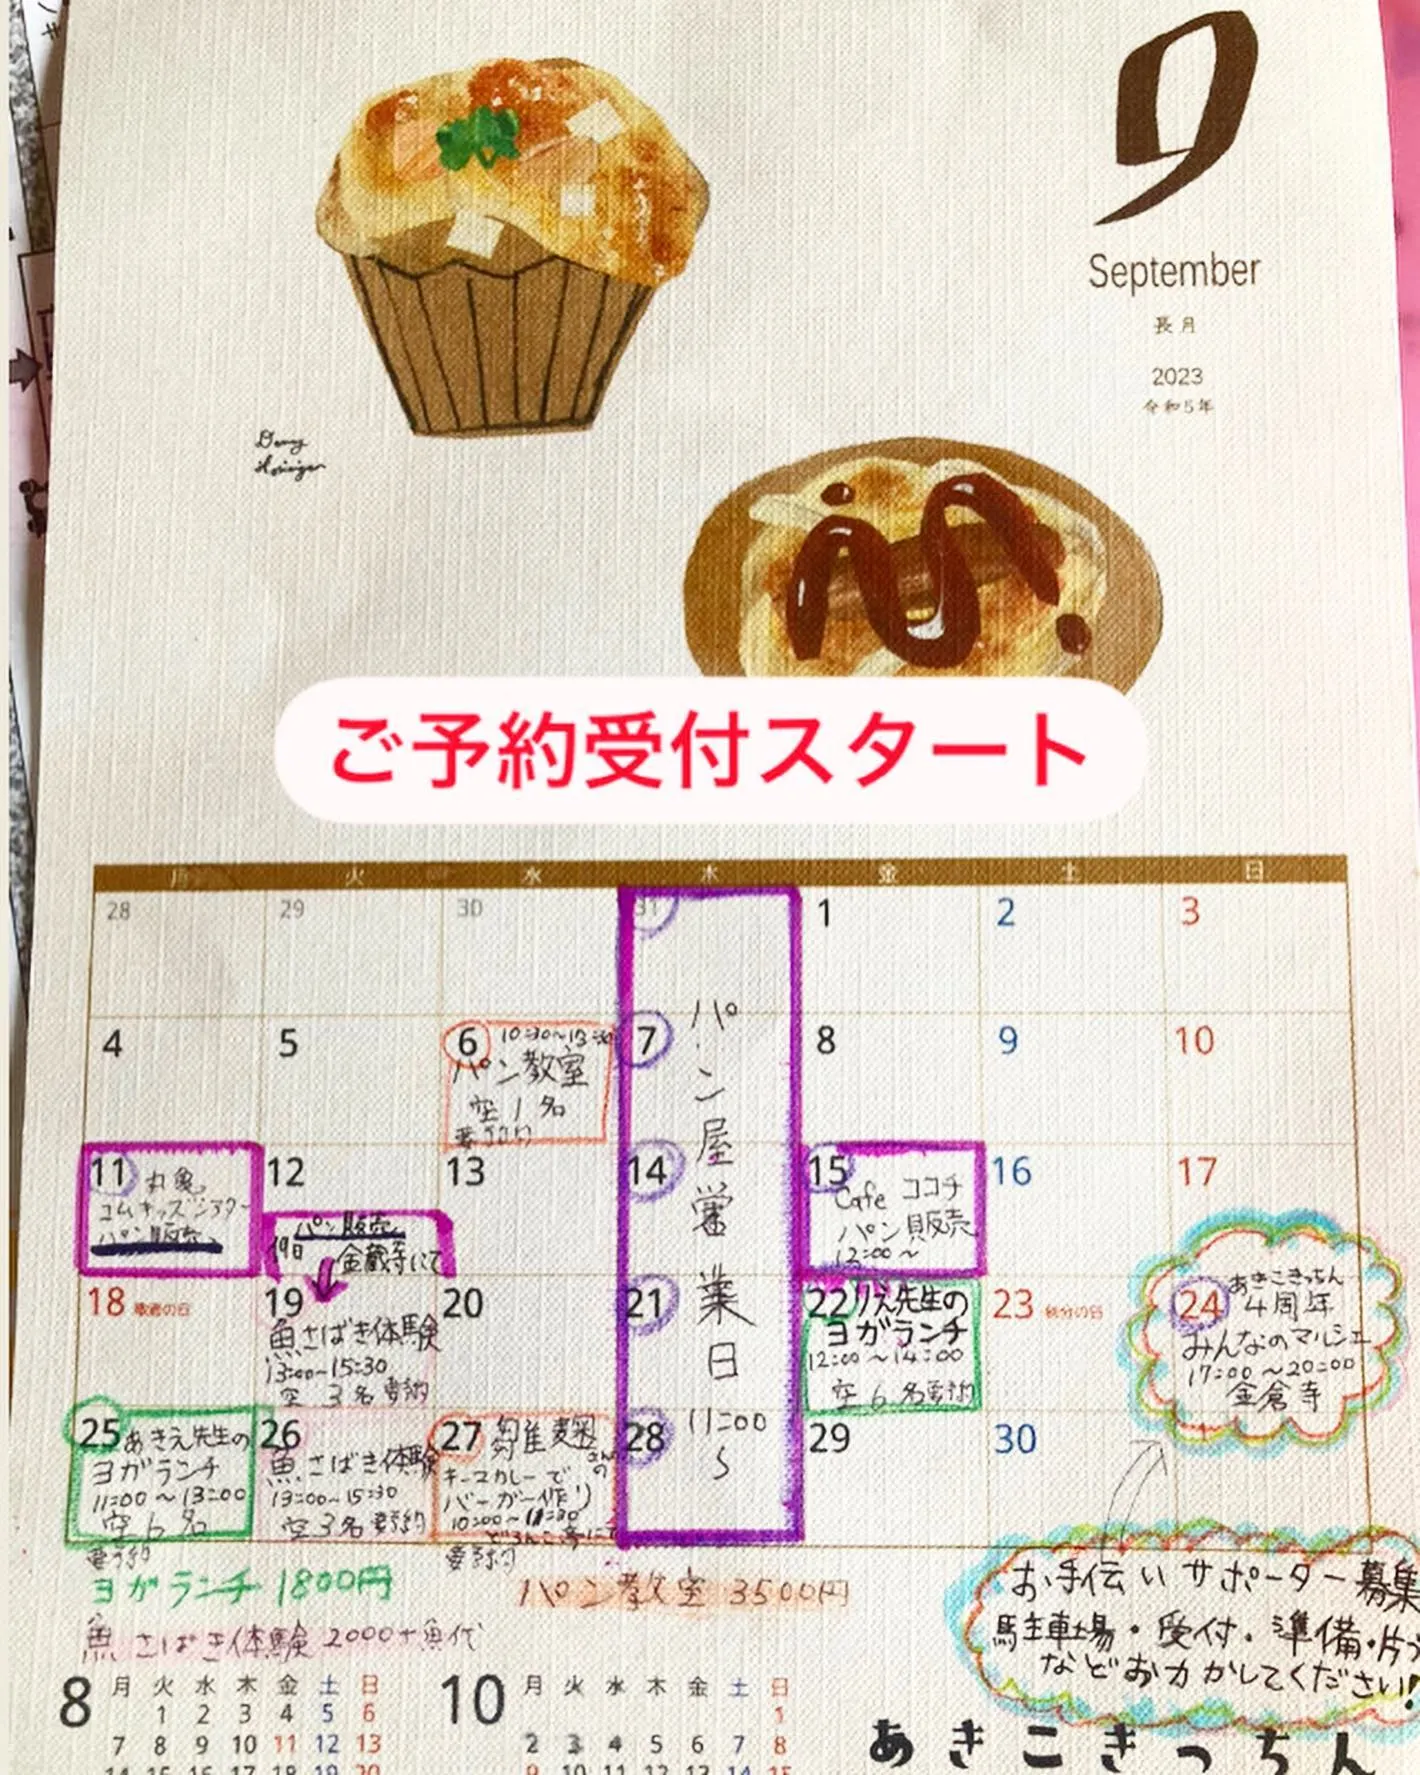 9
September
長月
2023
令和5年
ご予約受付スタート
月 火 水 木 金 土 日
28 29 30 31 1 2 3
4 5 6 7 8 9 10
10:30~13:30
パン教室
空1名
要予約
パン屋営業日 11:00~
11 12 13 14 15 16 17
丸亀
コムキッズシアター
パン販売
パン販売
19日 金蔵寺にて
Cafe ココチ
パン販売
12:00~
18 敬老の日 19 20 21 22 23 秋分の日 24
魚さばき体験
13:00~15:30
空3名要予約
りえ先生の
ヨガランチ
12:00~14:00
空6名要予約
あきこきっちん
4周年
みんなのマルシェ
17:00~20:00
金倉寺
25 26 27 28 29 30
あきえ先生の
ヨガランチ
11:00~13:00
空6名
要予約
魚さばき体験
13:00~15:30
空3名要予約
キーマカレーで
バーガー作り
要予約
ヨガランチ 1800円
パン教室 3500円
魚さばき体験 2000+魚代
お手伝いサポーター募集
駐車場・受付・準備・片づ
などお力かしてください!
8 月 火 水 木 金 土 日
1 2 3 4 5 6
7 8 9 10 11 12 13
14 15 16 17 18 19 20
10 月 火 水 木 金 土 日
1
2 3 4 5 6 7 8
9 10 11 12 13 14 15
あきこきっちん